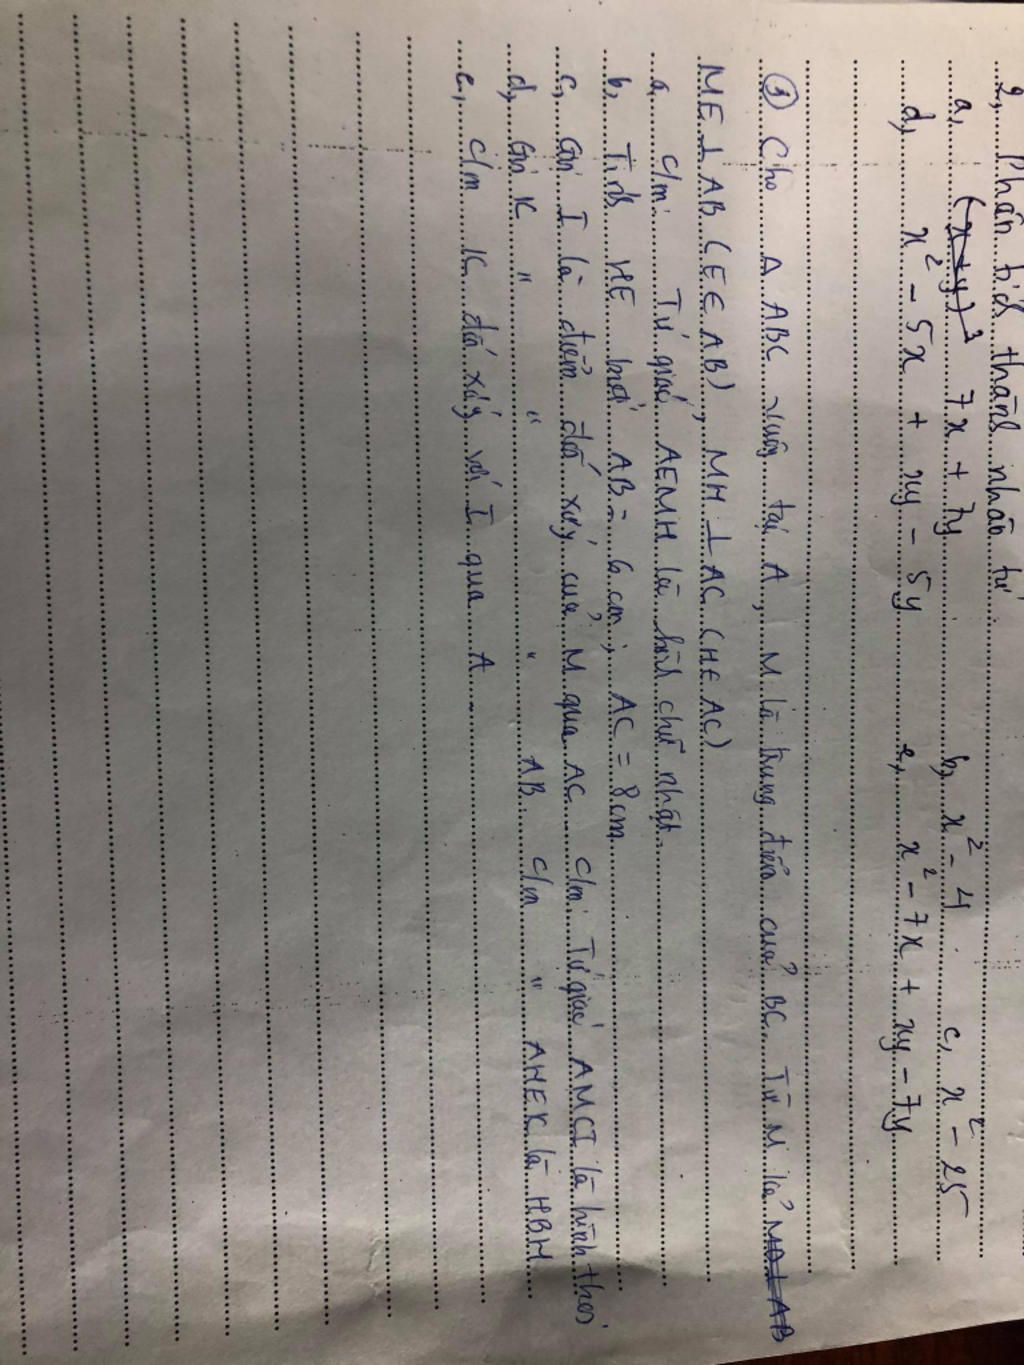 2, Phân tích thành nhân tử
a, 7x + 7y b, x² - 4 c, x² - 25
d, x² - 5x + xy - 5y e, x² - 7x + xy - 7y
③ Cho Δ ABC vuông tại A, M là trung điểm của BC. Từ M kẻ
ME ⊥ AB (E ∈ AB), MH ⊥ AC (H ∈ AC)
a, c/m: Tứ giác AEMH là hình chữ nhật.
b, Tính HE biết AB = 6 cm; AC = 8cm
c, Gọi I là điểm đối xứng của M qua AC c/m: Tứ giác AMCI là hình thoi
d, Gọi K " " " AB c/m " AHEK là HBH
e, c/m K đối xứng với I qua A